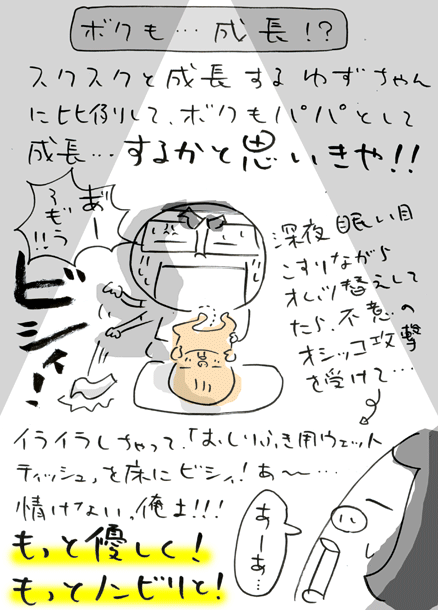 ボクも…成長!?
スクスクと成長するゆずちゃん
に比例して、ボクもパパとして
成長…するかと思いきや!!
あ゛ー
もぅう!!
ビシィ!
深夜眠い目
こすりながら
オムツ替えして
たら、不意の
オシッコ攻撃
を受けて…
イライラしちゃって、「おしりふき用ウェット
ティッシュ」を床にビシィ!あ〜…
情けない、俺よ!!!
あーぁ…
もっと優しく!
もっとノンビリと!